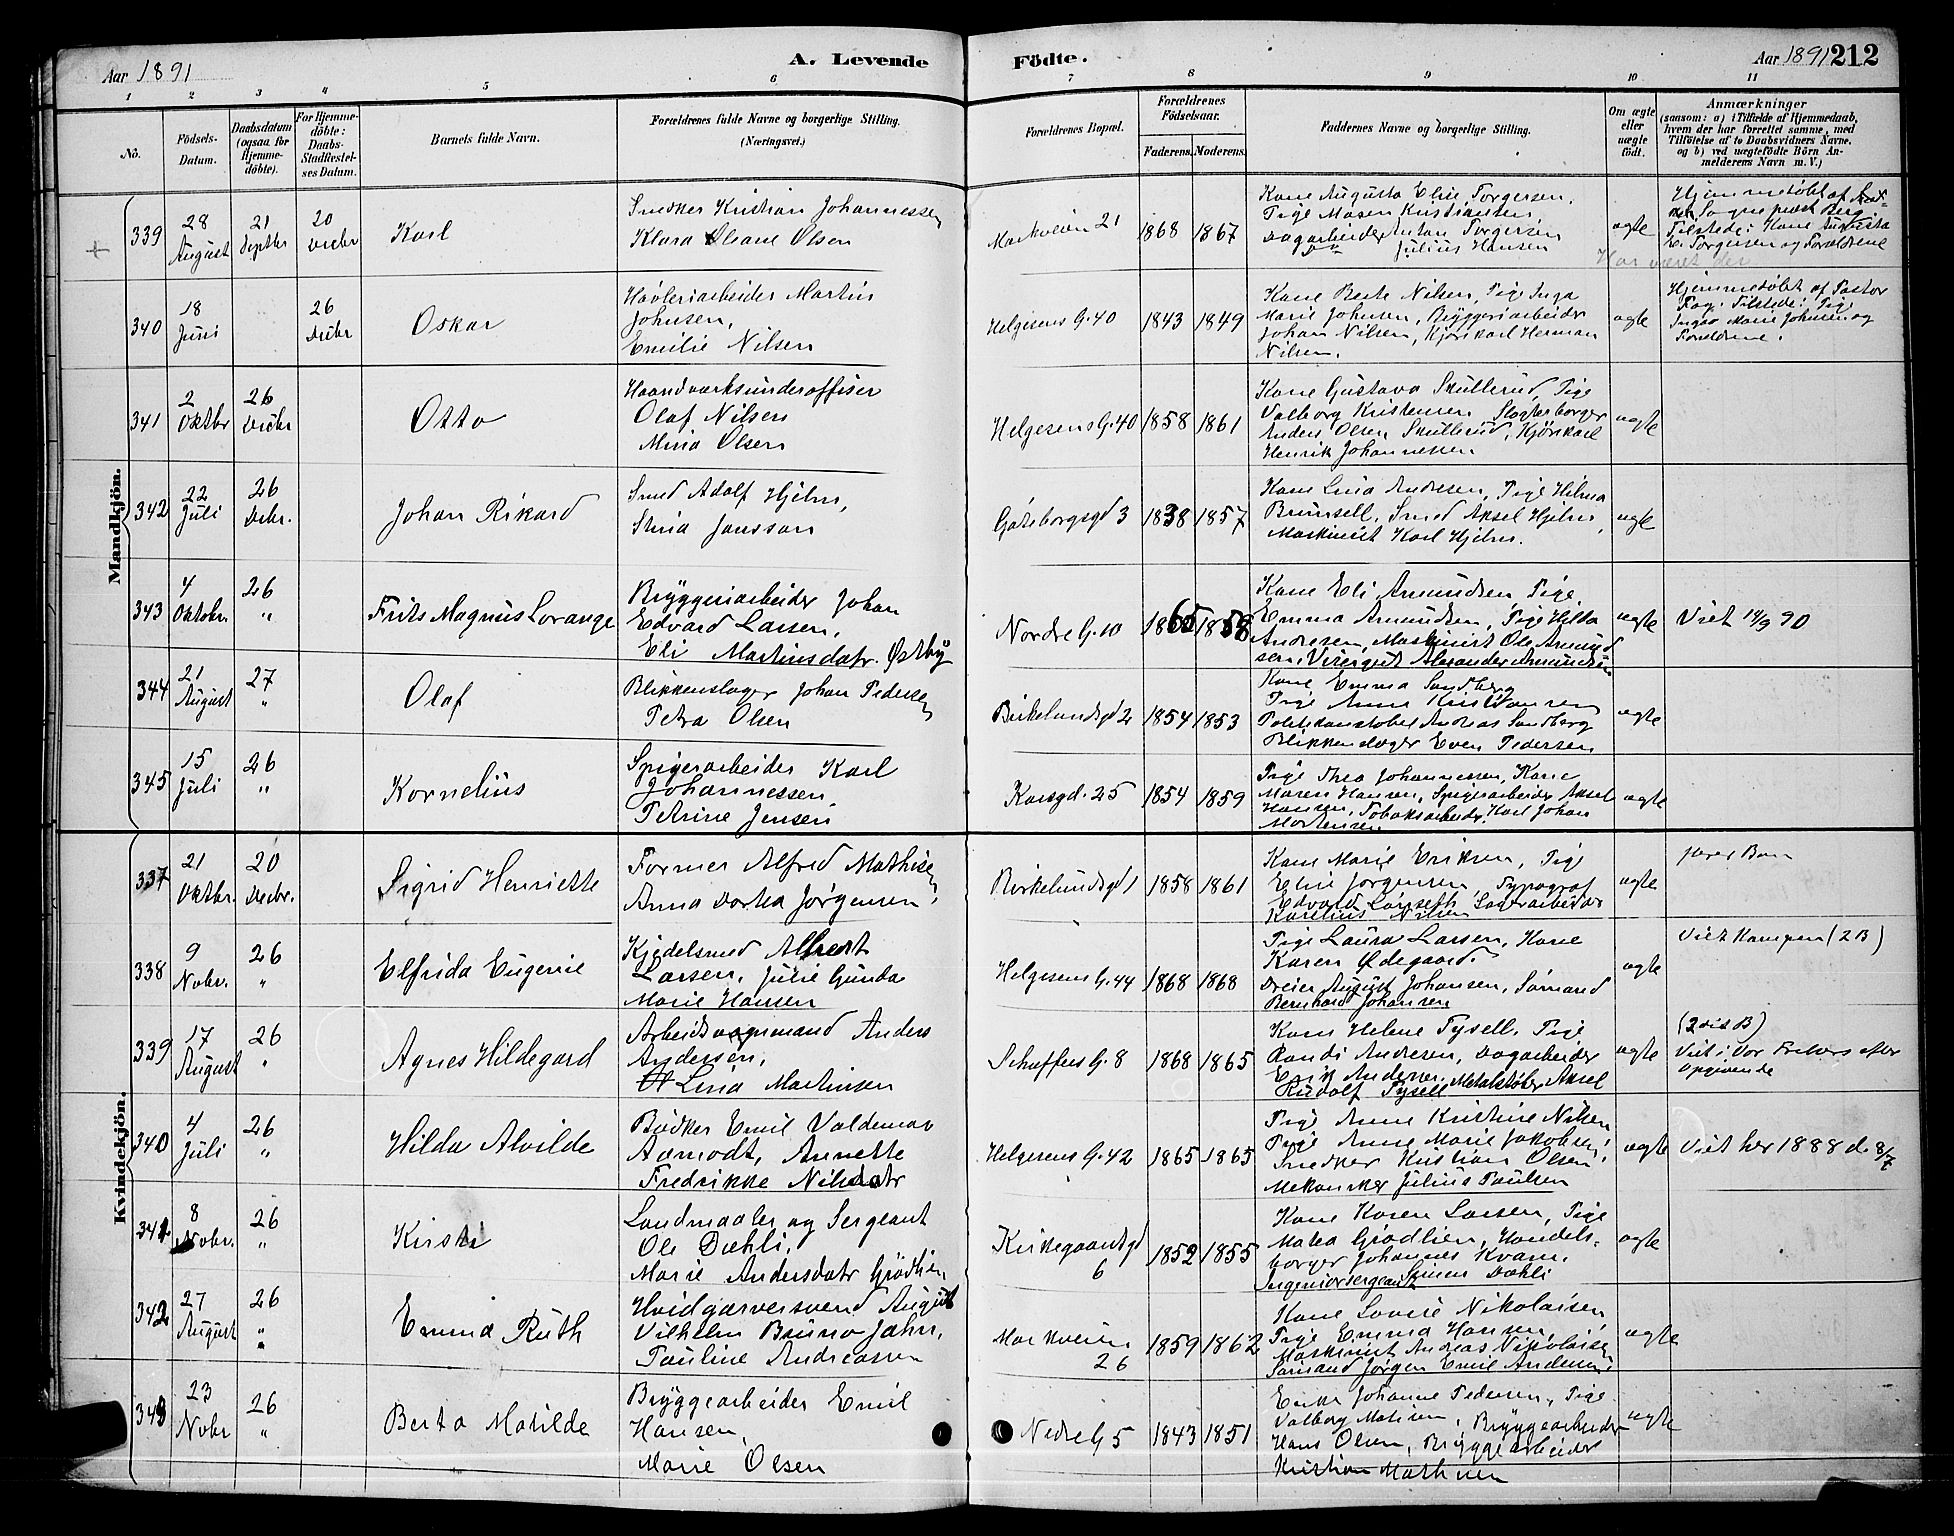 Aar 1891 A. Levende Födte. Aar 1891 212
1 2 3 4 5 6 7 8 9 10 11
No.
Födsels-
Datum.
Daabsdatum
(ogsaa for
Hjemme-
döbte).
For Hjemme-
döbte:
Daabs-
Stadfæstel-
ses Datum.
Barnets fulde Navn.
Forældrenes fulde Navne og borgerlige Stilling.
(Næringsvei.)
Forældrenes Bopæl.
Forældrenes
Födselsaar.
Faderens. Moderens.
Faddernes Navne og borgerlige Stilling.
Om ægte
eller
uægte
födt.
Anmærkninger
(saasom: a) i Tilfælde af Hjemmedaab,
hvem der har forrettet samme, med
Tilföielse af to Daabsvidners Navne,
og b) ved uægtefödte Börn An-
melderens Navn m. V.)
Mandkjön.
+
339
28
August
21
Septbr
20
Decbr
Karl
Snedker Kristian Johannessen
Klara Oleane Olsen
Markveien 21
1868 1867
Kone Augusta Elise Torgersen,
Pige Maren Kristiansen,
Dagarbeider Anton Torgersen
Julius Hansen
ægte
Hjemmedøbt af
Sogneprest Berg
Tilstede: Kone Augusta
E. Torgersen og Forældrene
Har været der
340
18
Juni
26
Decbr
Oskar
Høvleriarbeider Martin
Johnsen,
Emilie Nilsen
Helgesens G. 40
1843 1849
Kone Berte Nilsen, Pige Inga
Marie Johnsen, Bryggeriarbeider
Johan Nilsen, Kjørekarl Herman
Nilsen.
ægte
Hjemmedøbt af Pastor
Tilstede: Pige
Inga Marie Johnsen og
Forældrene.
341
2
Oktbr
26
Decbr
Otto
Haandværksunderoffiser
Olaf Nilsen
Mina Olsen
Helgesens G. 40
1858 1861
Kone Gustava Skullerud, Pige
Valborg Kristensen Slagterborger
Anders Olsen Skullerud, Kjørekarl
Henrik Johannessen
ægte
342
22
Juli
26
Decbr.
Johan Rikard
Smed Adolf Hjelm,
Stina Jansson
Gøteborgsgd 3
1838 1857
Kone Lina Andresen, Pige Hilma
Smed Aksel Hjelm,
Maskinist Karl Hjelm.
ægte
343
4
Oktober
26
"
Frits Magnus Lorange
Bryggeriarbeider Johan
Edvard Larsen,
Eli Martinsdatr. Østby
Nordre G. 10
1865 1858
Kone Eli Amundsen Pige
Emma Amundsen, Pige Hilda
Andresen, Maskinist Ole Amund
sen, Visergut Alexander Amundsen
ægte
Viet 14/9 90
344
21
August
27
"
Olaf
Blikkenslager Johan Pedersen
Petra Olsen
Birkelundsgd 2
1854 1853
Kone Emma Sandberg
Pige Anne Kristiansen
Politikonstabel Andreas Sandberg
Blikkenslager Even Pedersen
ægte
345
15
Juli
26
"
Kornelius
Spigerarbeider Karl
Johannessen,
Petrine Jensen
Korsgd. 25
1854 1859
Pige Thea Johannessen, Kone
Maren Hansen, Spigerarbeider Aksel
Hansen, Tobaksarbeider Karl Johan
Mortensen
ægte
Kvindekjön.
337
21
Oktbr.
20
Decbr.
Sigrid Henriette
Former Alfred Mathisen
Anna Dorthea Jørgensen,
Birkelundsgd 1
1858 1861
Kone Marie Eriksen, Pige
Elise Jørgensen, Typograf
Edvard
Karelius Nilsen
ægte
338
9
Nobr.
26
"
Elfrida Eugenie
Kjedelsmed Albert
Larsen, Julie Gunda
Marie Hansen
Helgesens G. 44
1868 1868
Pige Laura Larsen, Kone
Karen Ødegaard.
Dreier August Johansen, Sømand
Bernhard Johansen
ægte
Viet Kampen (2 B)
339
17
August
26
"
Agnes Hildegard
Arbeidsvognmand Anders
Andersen,
Lina Martinsen
Schøffers G. 8
1868 1865
Kone Helene Tysell, Pige
Randi Andresen, Dagarbeider
Erik Andersen. Metalstøber Aksel
Rudolf Tysell
ægte
Viet i Vor Frelsers efter
opgivende
340
4
Juli
26
"
Hilda Alvilde
Bødker Emil Valdemar
Aamodt, Annette
Fredrikke Nilsdatr
Helgesens G. 42
1865 1865
Pige Anne Kristine Nilsen
Pige Anne Marie Jakobsen,
Snedker Kristian Olsen
Mekaniker Julius Paulsen
ægte
Viet her 1888 d. 8/7
341
8
Nobr.
26
"
Kirsti
Landmaaler og Sergeant
Ole Dæhli,
Marie Andersdatr Grødlien
Kirkegaardsgd
6
1852 1855
Kone Karen Larsen, Pige
Grødlien, Handels-
borger Johannes Kvam,
Ingeniørsergeant Simen Dæhli
ægte
342
27
August
26
"
Emma Ruth
Hvidgarversvend August
Vilhelm Bruno Jahn,
Pauline Andreassen
Markveien
26
1859 1862
Kone Lovise Nikolaisen,
Pige Emma Hansen,
Maskinist Andreas Nikolaisen
Sømand Jørgen Emil Andersen.
ægte
343
23
Nobr
26
"
Berta Matilde
Bryggearbeider Emil
Hansen,
Marie Olsen
Nedre G 5
1843 1851
Enke Johanne Pedersen, Pige
Valborg Bryggearbeider
Hans Olsen, Bryggearbeider
Kristian Mathisen
ægte